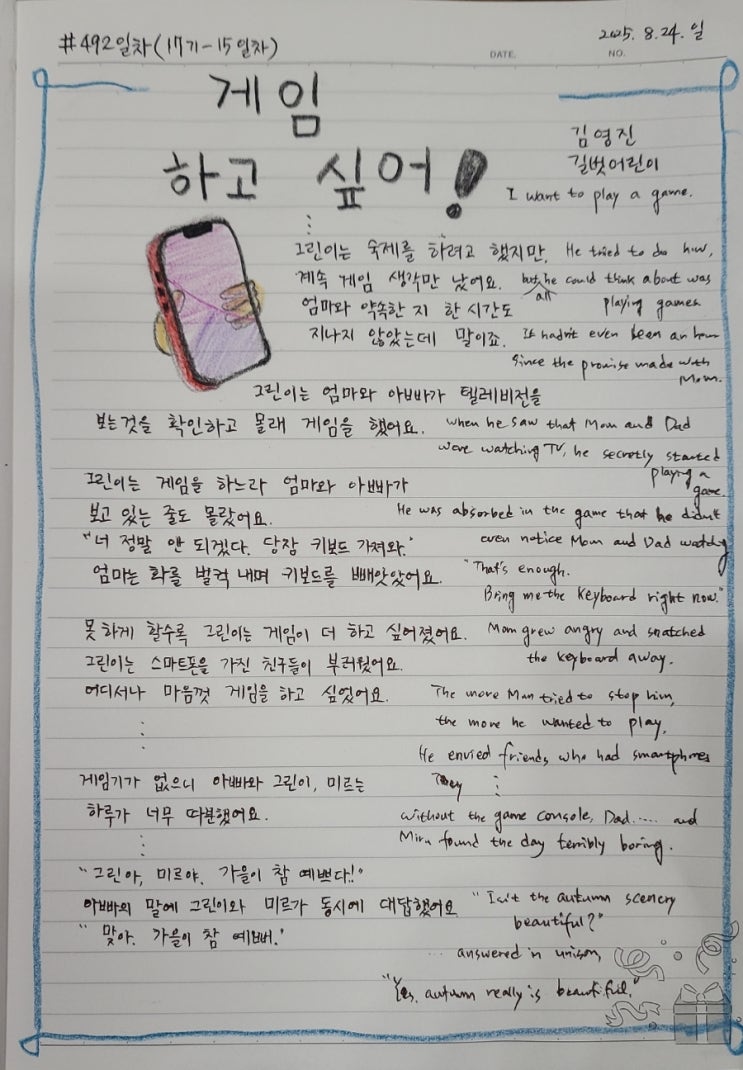 #492일차(17기-15일차)
2025. 8. 24. 일
DATE.
NO.
게임
하고 싶어!
김영진
길벗어린이
I want to play a game.
그린이는 숙제를 하려고 했지만, He tried to do hw,
계속 게임 생각만 났어요. but all he could think about was
엄마와 약속한 지 한 시간도 playing games
지나지 않았는데 말이죠. It hadn't even been an hour
since the promise made with
Mom.
그린이는 엄마와 아빠가 텔레비전을
보는것을 확인하고 몰래 게임을 했어요. when he saw that Mom and Dad
were watching TV, he secretly started
playing a
game.
그린이는 게임을 하느라 엄마와 아빠가
보고 있는 줄도 몰랐어요. He was absorbed in the game that he didn't
"너 정말 안 되겠다. 당장 키보드 가져와." even notice Mom and Dad watching
엄마는 화를 벌컥 내며 키보드를 빼앗았어요. "That's enough.
Bring me the keyboard right now."
못 하게 할수록 그린이는 게임이 더 하고 싶어졌어요. Mom grew angry and snatched
그린이는 스마트폰을 가진 친구들이 부러웠어요. the keyboard away.
어디서나 마음껏 게임을 하고 싶었어요. The more Mom tried to stop him,
the more he wanted to play.
He envied friends who had smartphones
게임기가 없으니 아빠와 그린이, 미르는 They
하루가 너무 따분했어요. without the game console, Dad..... and
Miru found the day terribly boring.
"그린아, 미르야. 가을이 참 예쁘다!"
아빠의 말에 그린이와 미르가 동시에 대답했어요 "Isn't the autumn scenery
beautiful?"
"맞아. 가을이 참 예뻐."
... answered in unison,
"Yes, autumn really is beautiful."